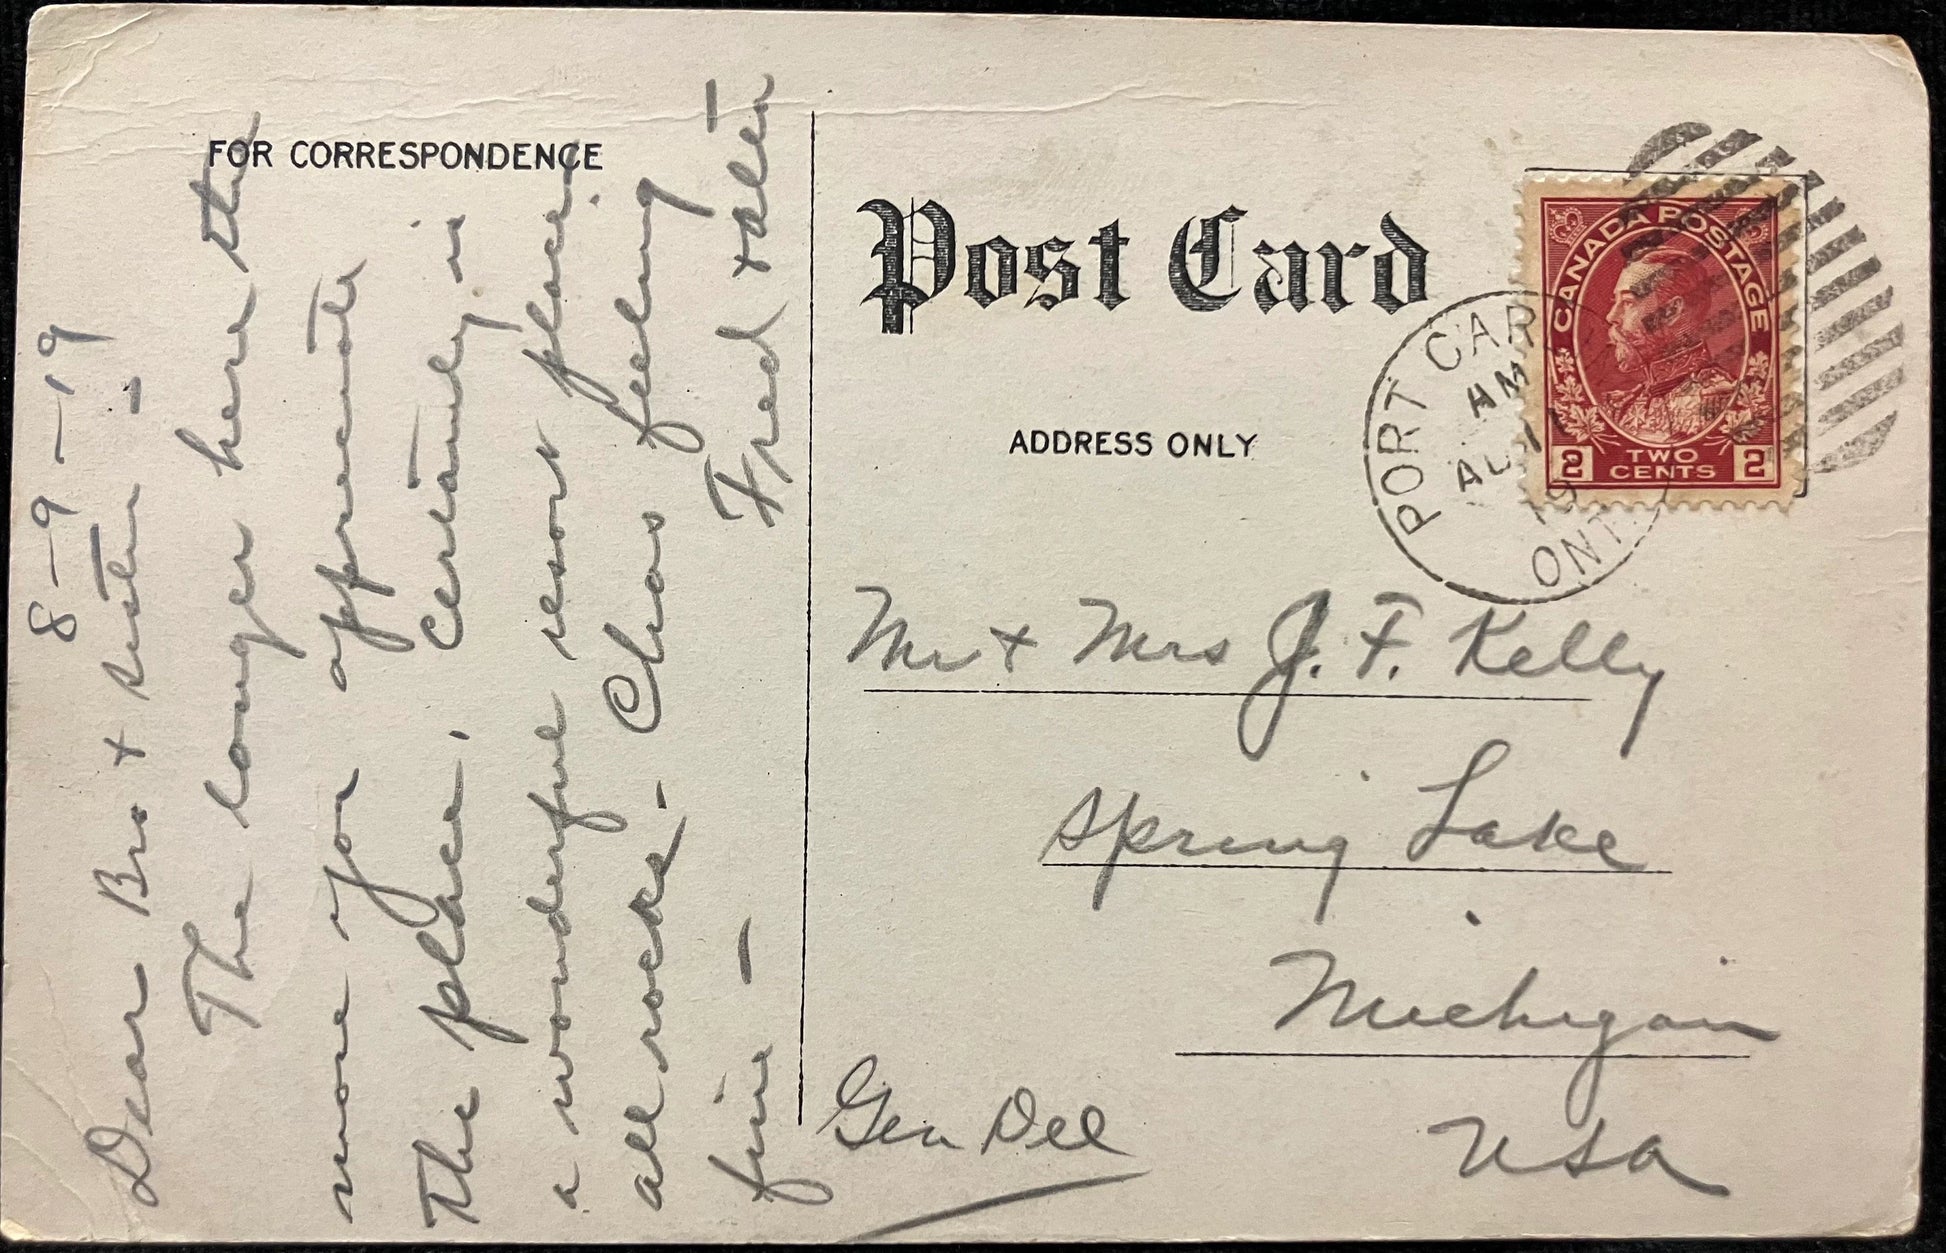 FOR CORRESPONDENCE
8-9-19
Dear Bro + sister -
The longer here the
more you appreciate
the place. Certainly is
a wonderful resort place.
all rocks - Chas feeling
fine - Fred +
Post Card
ADDRESS ONLY
CANADA POSTAGE
2 TWO CENTS 2
PORT CAR
AM
AU 11
19
ONT.
Mr + Mrs J. F. Kelly
Spring Lake
Michigan
USA
Gen Del